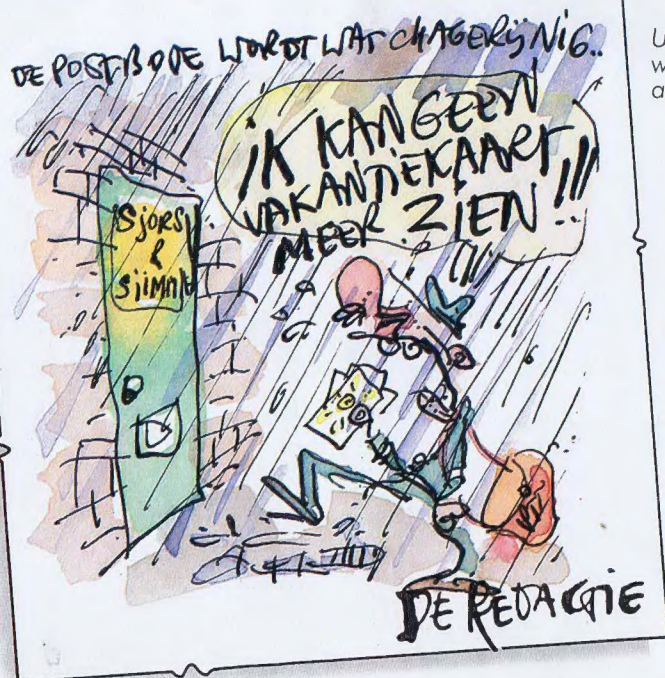 DE POSTBODE WORDT WAT CHAGERIJNIG..
IK KAN GEEN
VAKANTIEKAART
MEER ZIEN!!!
SJORS
&
SJIMMIE
DE REDACTIE
U
w
a